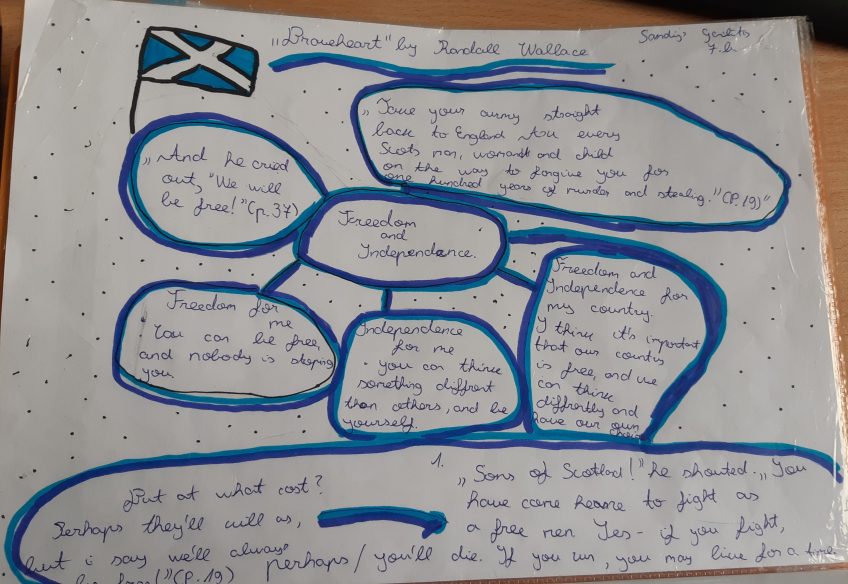 „Braveheart" by Randall Wallace
7.b
„Take your army straight
back to England. You every
Scots man, womant and child
on the way to forgive you for
one hundred years of murder and stealing."(P.19)"
„And he cried
out, "We will
be free!"(p.37)
Freedom
and
Independence.
Freedom for
me
You can be free,
and nobody is stoping
you.
Independence
for me
• you can think
something diffrent
than others, and be
yourself.
Freedom and
Independence for
my country.
I think it's important
that our country
is free, and we
can think
diffrently and
have our own
But at what cost?
Perhaps they'll kill as,
but i say we'll always
be free!"(P.19)
1.
„Sons of Scotlod!" he shouted. „You
have come heare to fight as
a free men. Yes - if you fight,
perhaps/you'll die. If you run, you may live for a time.